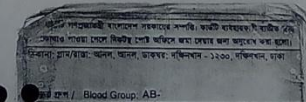 গণপ্রজাতন্ত্রী বাংলাদেশ সরকারের সম্পত্তি। কার্ডটি ব্যবহারকারী ব্যতীত অন্য
কোথাও পাওয়া গেলে নিকটস্থ পোস্ট অফিসে জমা দেবার জন্য অনুরোধ করা হলো।
ঠিকানা: গ্রাম/রাস্তা: আনল, আনল, ডাকঘর: দক্ষিনখান - ১২৩০, দক্ষিনখান, ঢাকা
রক্তের গ্রুপ / Blood Group: AB-